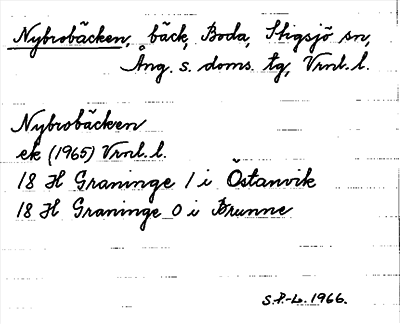 Nybrobäcken, bäck, Boda, Stigsjö sn,
Ång. s. doms. tg, Vrnl. l.
Nybrobäcken
ek (1965) Vrnl. l.
18 H Graninge 1 i Östanvik
18 H Graninge 0 i Brunne
S.P.-L. 1966.